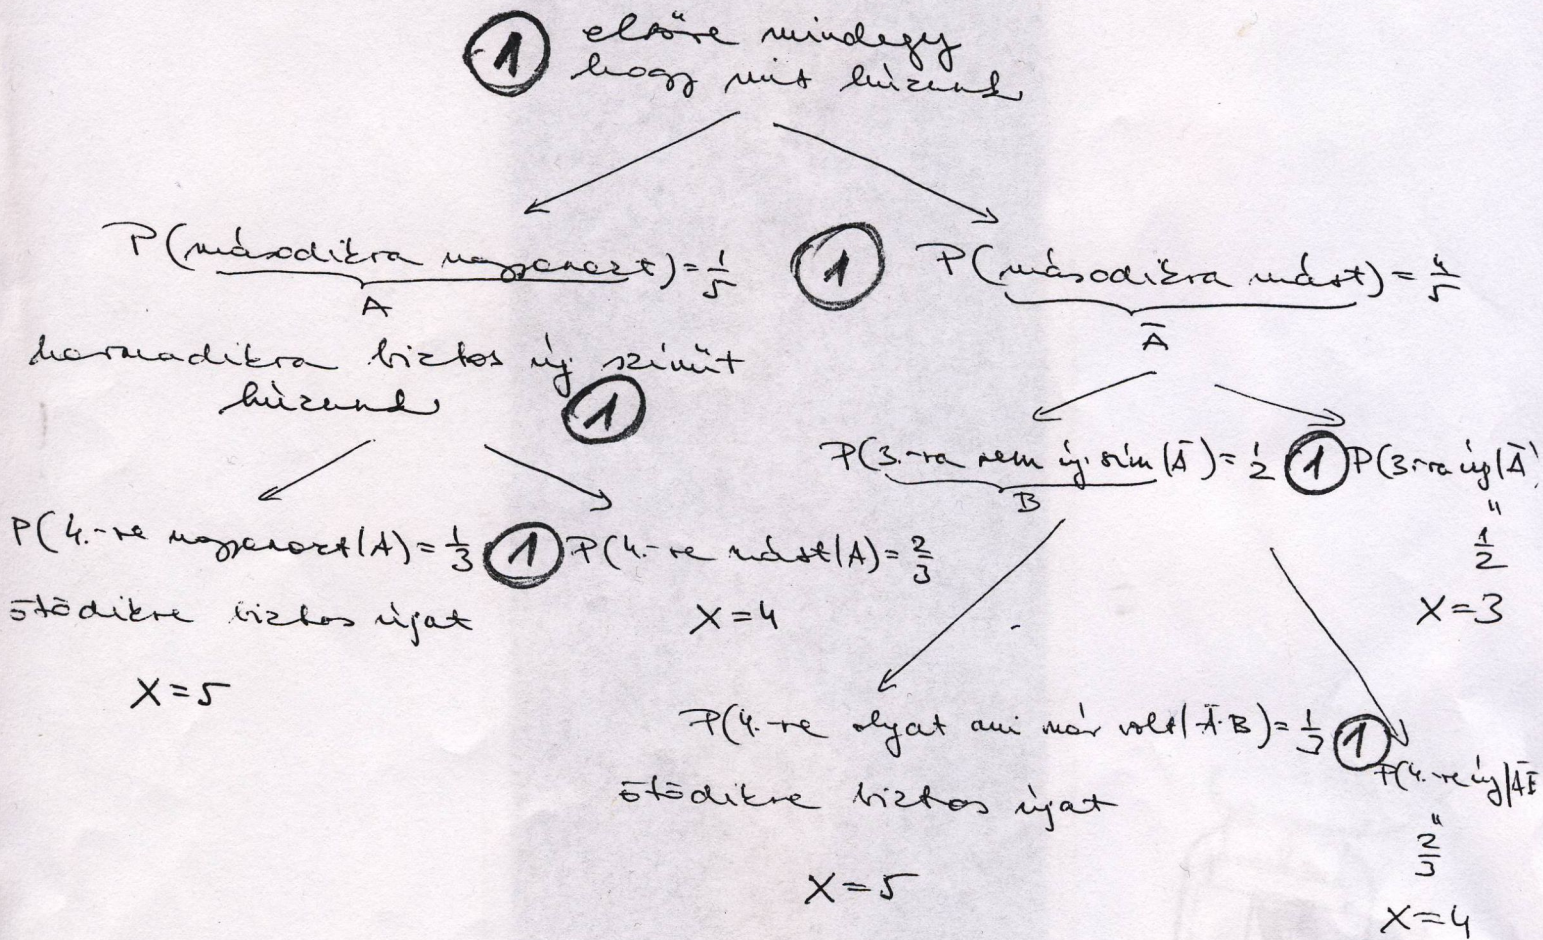 1 előre mindegy
hogy mit húzunk
P(másodikra ugyanazt) = 1/5
A
1
P(másodikra mást) = 4/5
Ā
harmadikra biztos új színűt
húzunk
1
P(3.-ra nem új szín|Ā) = 1/2
B
1
P(3.-ra új|Ā)
"
1/2
X=3
P(4.-re ugyanazt|A) = 1/3
1
P(4.-re mást|A) = 2/3
ötödikre biztos újat
X=4
X=5
P(4.-re olyat ami már volt|Ā·B) = 1/3
1
P(4.-re új|Ā
"
2/3
X=4
ötödikre biztos újat
X=5